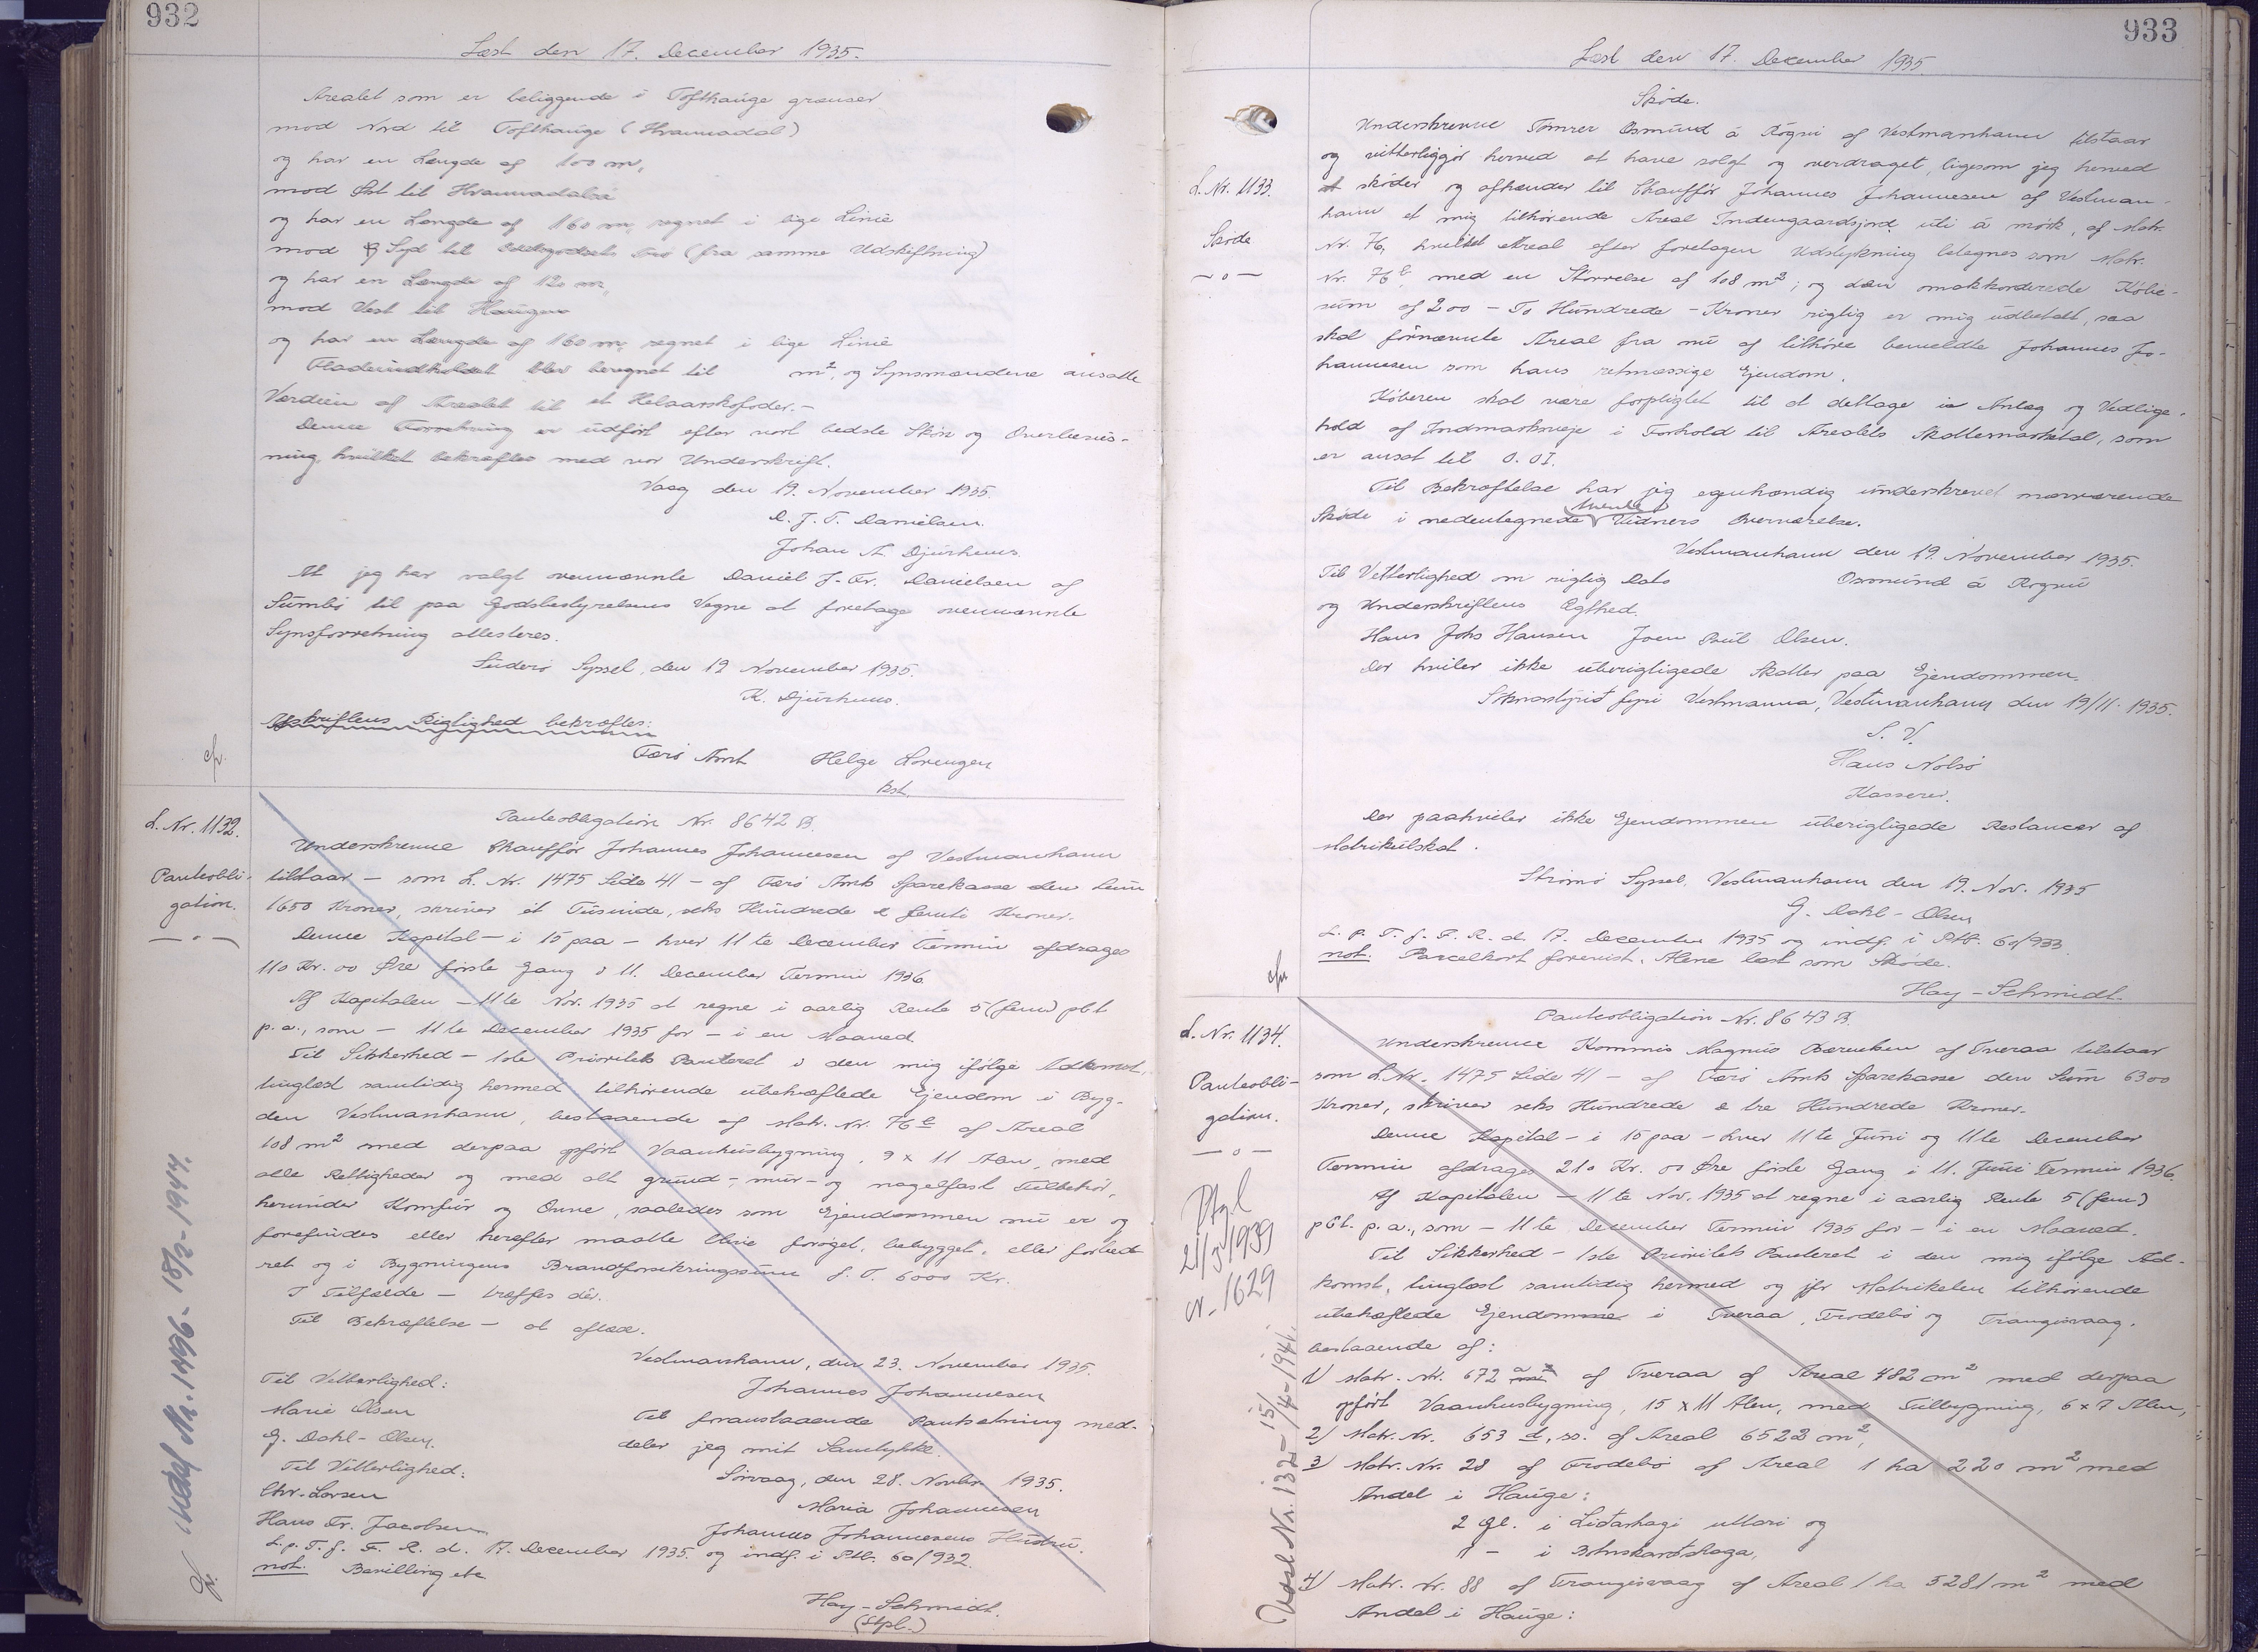 932
Læst den 17. December 1935.
Arealet som er beliggende i Tofthauge grænser
mod Nord til Tofthauge (Hvannadal)
og har en Længde af 100 m,
mod Øst til Hvannadalsá
og har en Længde af 160 m, regnet i lige Linie
mod Syd til (fra samme Udskiftning)
og har en Længde af 120 m,
mod Vest til Haugen
og har en Længde af 160 m, regnet i lige Linie
Fladeindholdet blev beregnet til m², og Synsmændene ansatte
Værdien af Arealet til et Helaarskofoder.-
Denne Forretning er udført efter vort bedste Skøn og Overbevis-
ning, hvilket bekræftes med vor Underskrift.
Vaag den 19. November 1935.
D. J. F. Danielsen.
Johan A. Djurhuus.
At jeg har valgt ovennævnte Daniel J. Fr. Danielsen af
Sumbø til paa Godsbestyrelsens Vegne at foretage ovennævnte
Synsforretning attesteres.
Suderø Syssel, den 19 November 1935.
K. Djurhuus.
Afskriftens Rigtighed bekræftes:
cfr.
Færø Amt Helge Lorengen
kst.
L. Nr. 1132.
Panteobli-
gation.
— o —
Panteobligation Nr. 8642 B.
Underskrevne Chauffør Johannes Johannesen af Vestmanhavn
tilstaar — som L. Nr. 1475 Side 41 — af Færø Amts Sparekasse den Sum
1650 Kroner, skriver et Tusinde, seks Hundrede & femti Kroner.
Denne Kapital — i 15 paa — hver 11te December Termin afdrages
110 Kr. 00 Øre første Gang i 11. December Termin 1936.
Af Kapitalen — 11te Nov. 1935 at regne i aarlig Rente 5 (fem) pCt
p.a., som — 11te December 1935 for — i en Maaned.
Til Sikkerhed — 1ste Prioritets Panteret i den mig ifølge Adkomst,
tinglæst samtidig hermed tilhørende ubehæftede Ejendom i Byg-
den Vestmanhavn, bestaaende af Matr. Nr. 76 e af Areal
108 m² med derpaa opført Vaanhusbygning, 9 x 11 Alen, med
alle Rettigheder og med alt grund-, mur- og nagelfast Tilbehør,
herunder Komfur og Ovne, saaledes som Ejendommen nu er og
forefindes eller herefter maatte blive forøget, bebygget, eller forbed-
ret og i Bygningens Brandforsikringssum f. T. 6000 Kr.
I Tilfælde — træffes dér.
Til Bekræftelse — at aflæse.
Vestmanhavn, den 23. November 1935.
Johannes Johannesen
Til Vitterlighed:
Marie Olsen
G. Dahl-Olsen.
Til foranstaaende Pantsætning med-
deler jeg mit Samtykke.
Sørvaag, den 28. Novbr. 1935.
Maria Johannesen
Johannes Johannesens Hustru.
Til Vitterlighed:
Chr. Larsen
Hans Fr. Jacobsen
L. p. T. f. F. R. d. 17. December 1935 og indf. i Ptb. 60/932.
not. Bevilling etc
Hay-Schmidt.
(Stpl.)
Udsl Nr. 1496 - 18/2 - 1944.
cfr.
933
Læst den 17. December 1935
L. Nr. 1133.
Skøde
— o —
Skøde.
Underskrevne Tømrer Osmund á Rógvi af Vestmanhavn tilstaar
og vitterliggør herved at have solgt og overdraget, ligesom jeg herved
skøder og afhænder til Chauffør Johannes Johannesen af Vestman-
havn et mig tilhørende Areal Indengaardsjord, uti á mørk, af Matr.
Nr. 76, hvilket Areal efter foretagen Udstykning betegnes som Matr.
Nr. 76 e, med en Størrelse af 108 m²; og den omakkorderede Købe-
sum af 200 - To Hundrede - Kroner rigtig er mig udbetalt, saa
skal førnævnte Areal fra nu af tilhøre bemeldte Johannes Jo-
hannesen som hans retmæssige Ejendom.
Køberen skal være forpligtet til at deltage i Anlæg og Vedlige-
hold af Indmarksveje i Forhold til Arealets Skattemarketal, som
er ansat til 0.01.
Til Bekræftelse har jeg egenhændig underskrevet nærværende
Skøde i nedentegnede tvende Vidners Overværelse.
Vestmanhavn den 19. November 1935.
Til Vitterlighed om rigtig Dato Osmund á Rógvi
og Underskriftens Ægthed.
Hans Johs Hansen Joen Poul Olsen.
Der hviler ikke uberigtigede Skatter paa Ejendommen.
Sóknarstýrið fyri Vestmanna, Vestmanhavn den 19/11. 1935.
S. V.
Hans Nólsø
Kasserer.
Der paahviler ikke Ejendommen uberigtigede Restancer af
Matrikulskat.
Strømø Syssel, Vestmanhavn den 19. Nov. 1935
G. Dahl-Olsen
L. p. T. f. F. R. d. 17. December 1935 og indf. i Ptb. 60/933
not. Parcelkort forevist. Alene læst som Skøde.
Hay-Schmidt.
cfr
L. Nr. 1134.
Panteobli-
gation.
— o —
Panteobligation Nr. 8643 B.
Underskrevne Kommis Magnus Bærentsen af Tveraa tilstaar
som L. Nr. 1475 Side 41 — af Færø Amts Sparekasse den Sum 6300
Kroner, skriver seks Hundrede & tre Hundrede Kroner.
Denne Kapital — i 15 paa — hver 11te Juni og 11te December
Termin afdrages 210 Kr. 00 Øre første Gang i 11. Juni Termin 1936.
Af Kapitalen — 11te Nov. 1935 at regne i aarlig Rente 5 (fem)
pCt. p.a., som — 11te December Termin 1935 for — i en Maaned.
Til Sikkerhed — 1ste Prioritets Panteret i den mig ifølge Ad-
komst, tinglæst samtidig hermed og jfr Matrikelen tilhørende
ubehæftede Ejendomme i Tveraa, Frodebø og Trangisvaag,
bestaaende af:
1) Matr. Nr. 672 a af Tveraa af Areal 482 m² med derpaa
opført Vaanhusbygning, 15 x 11 Alen, med Tilbygning, 6 x 7 Alen,
2) Matr. Nr. 653 d, sc. af Areal 6523 m²,
3) Matr. Nr. 28 af Frodebø af Areal 1 ha 220 m² med
Andel i Hauge:
2 gl. i Liðarhagi uttari og
" - i Botnskarðshaga,
4) Matr. Nr. 88 af Trangisvaag af Areal 1 ha 5281 m² med
Andel i Hauge:
21/3 1939
nr. 1629
Udsl Nr. 132 - 15/4 - 1941.